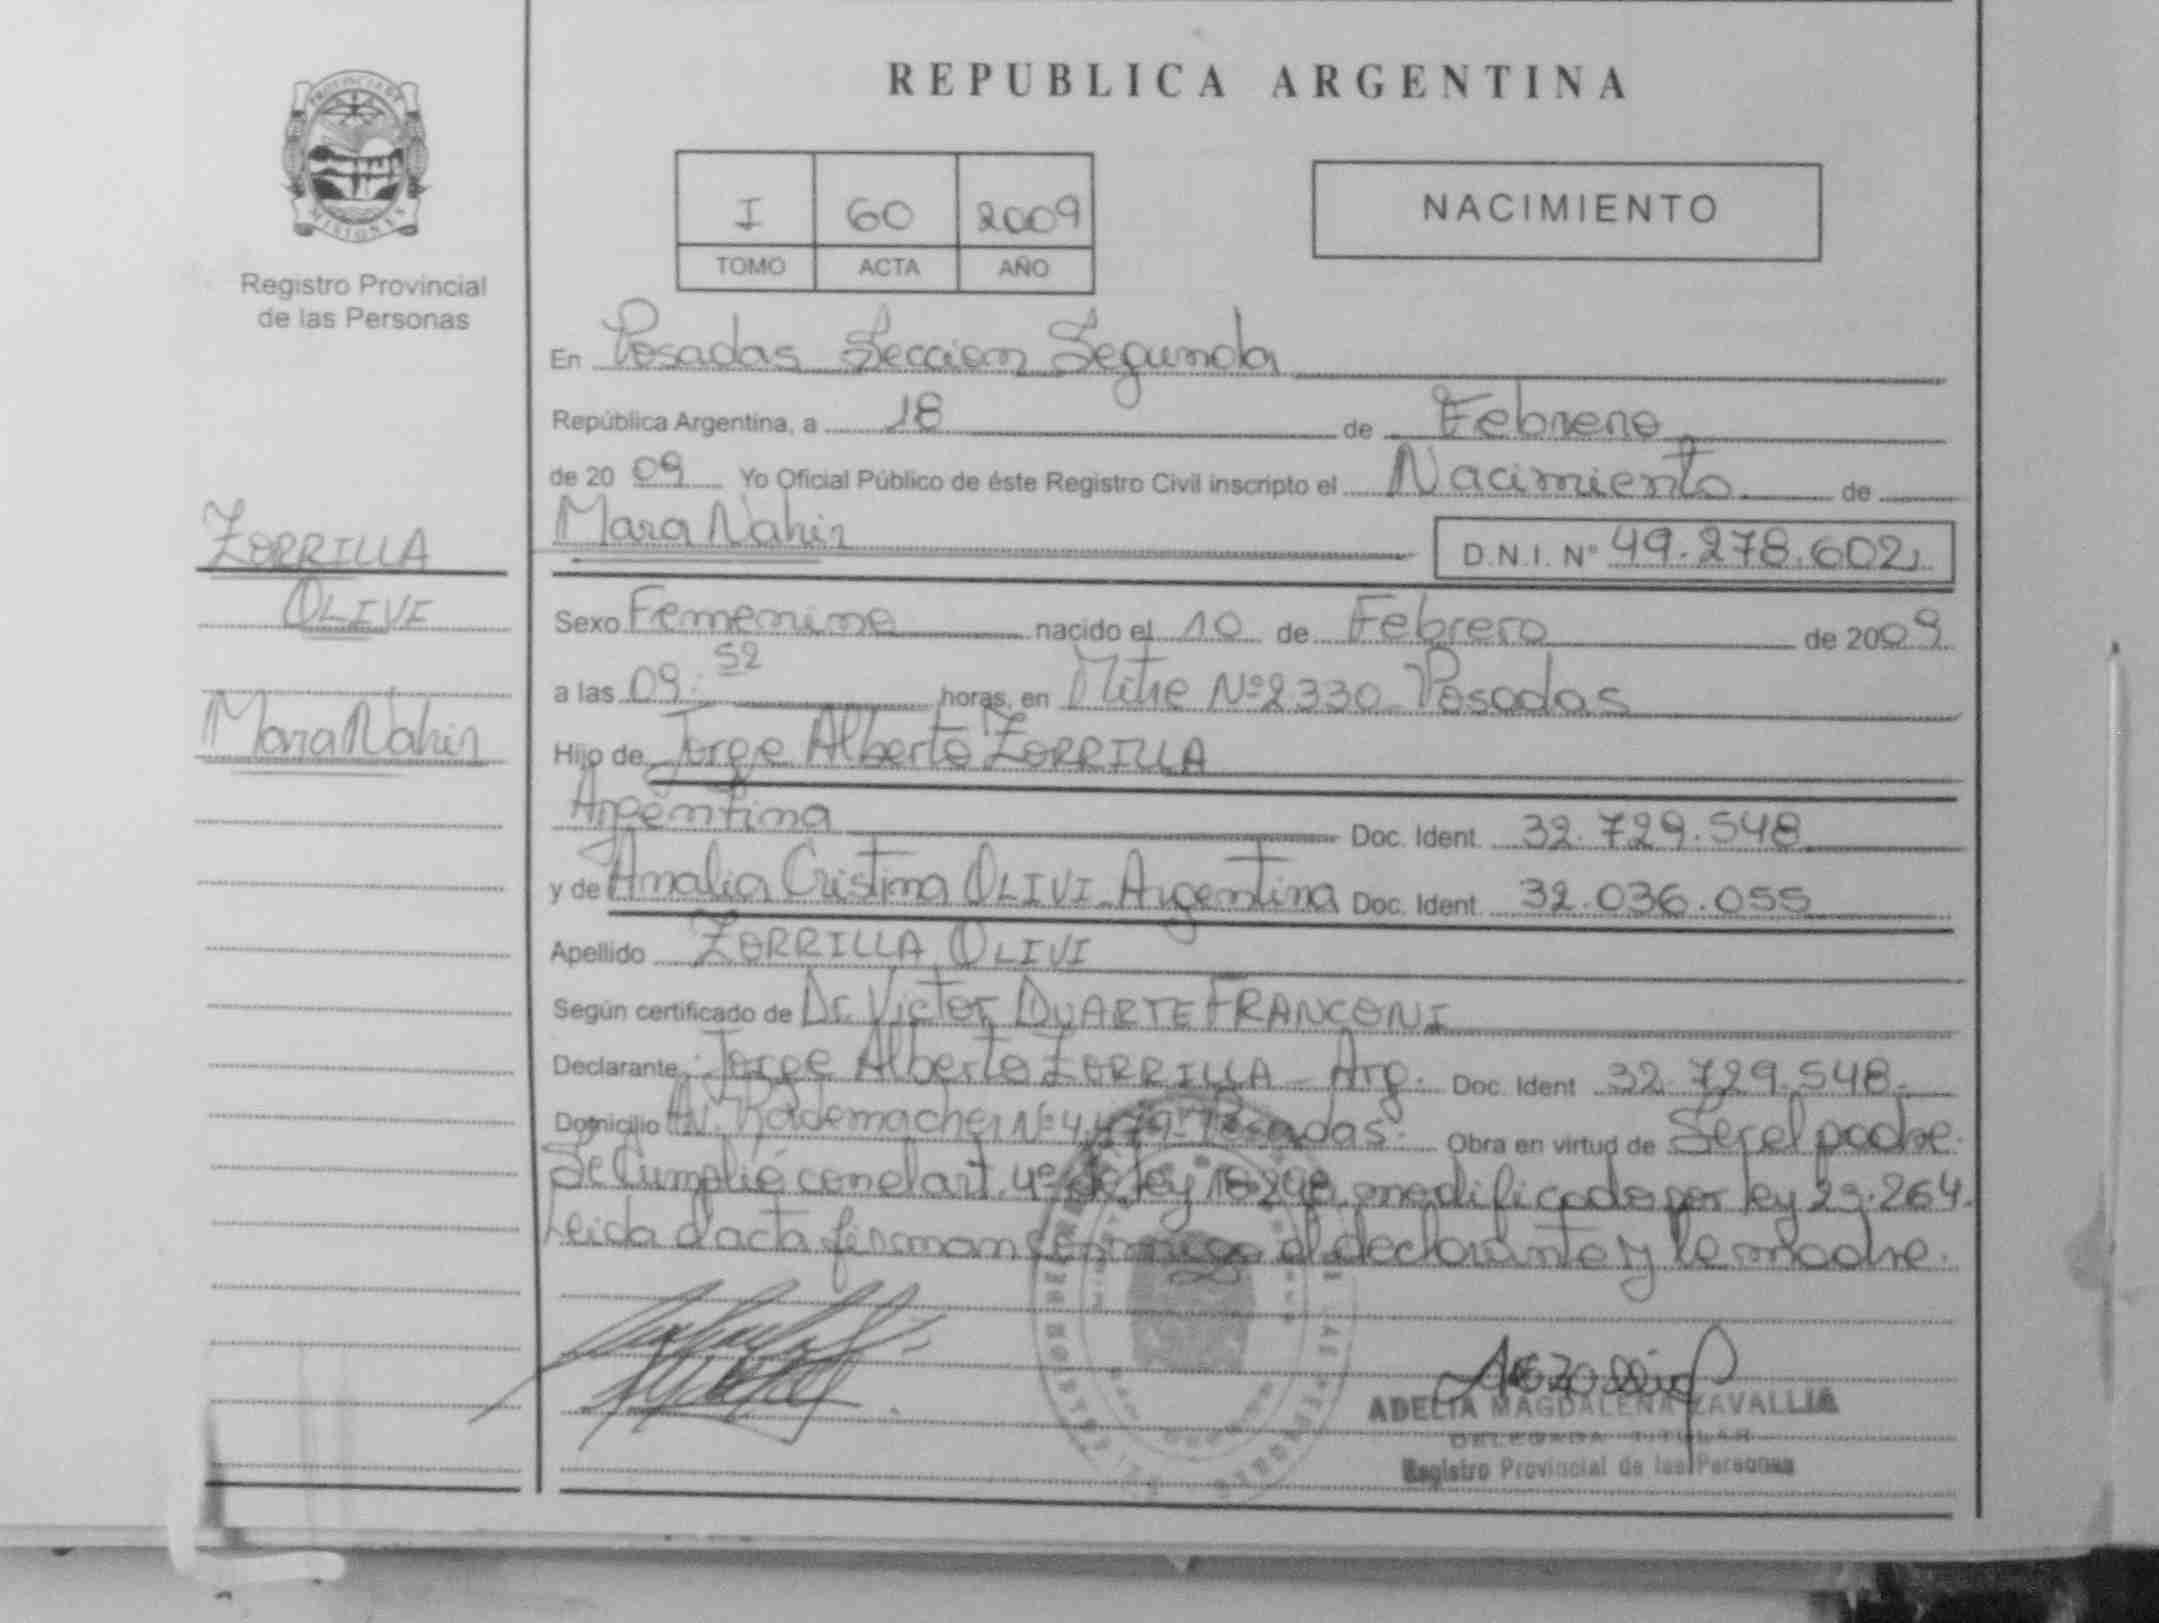 PROVINCIA DE
MISIONES
Registro Provincial
de las Personas
ZORRILLA
OLIVI
Mara Nahir
REPUBLICA ARGENTINA
I 60 2009
TOMO ACTA AÑO
NACIMIENTO
En Posadas Seccion Segunda
República Argentina, a 18 de Febrero
de 2009 Yo Oficial Público de éste Registro Civil inscripto el Nacimiento de
Mara Nahir D.N.I. Nº 49.278.602
Sexo Femenino nacido el 10 de Febrero de 2009
a las 09:52 horas, en Mitre Nº 2330 Posadas
Hijo de Jorge Alberto ZORRILLA
Argentina Doc. Ident. 32.729.548
y de Amalia Cristina OLIVI - Argentina Doc. Ident. 32.036.055
Apellido ZORRILLA OLIVI
Según certificado de Dr. Victor DUARTE FRANCONI
Declarante Jorge Alberto ZORRILLA - Arg. Doc. Ident 32.729.548.
Domicilio Av. Rademacher Nº Posadas. Obra en virtud de Ser el padre.
Se Cumplió con el art. 4º de ley modificado por ley 23.264.
Leida el acta firman conmigo el declarante y la madre.
ADELIA MAGDALENA ZAVALLIA
DELEGADA TITULAR
Registro Provincial de las Personas